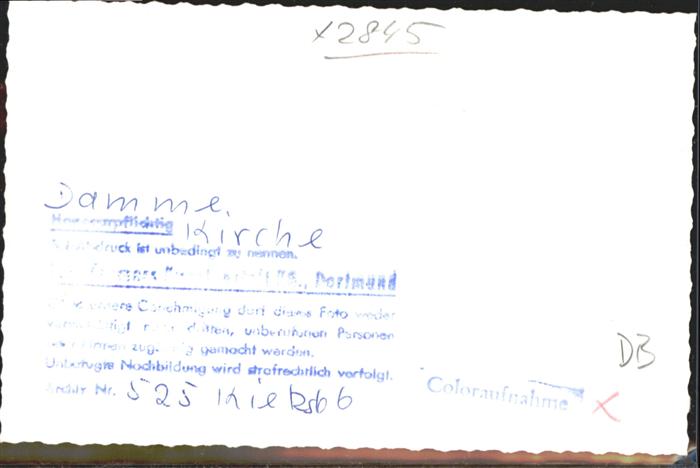 x2845
Damme.
Honorarpflichtig Kirche
ist unbedingt zu nennen.
Dortmund
unsere Genehmigung darf dieses Foto weder
noch dritten, unberufenen Personen
gemacht werden.
Unbefugte Nachbildung wird strafrechtlich verfolgt.
Archiv Nr. 525
Coloraufnahme x
DB